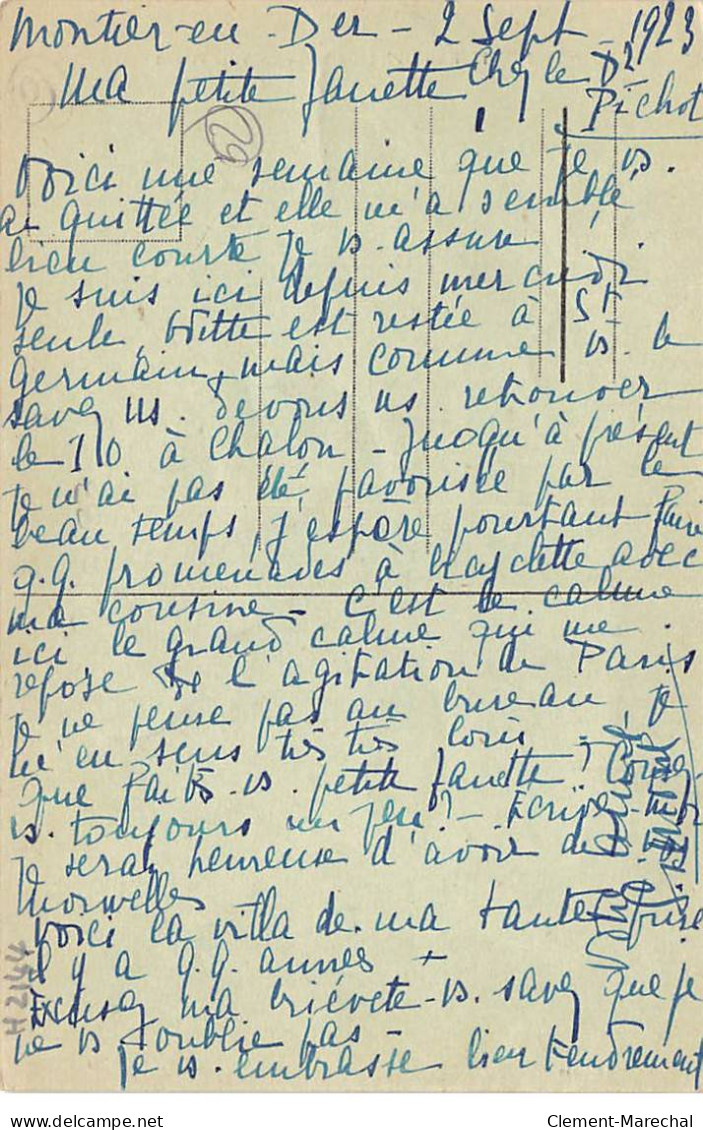 Montier-en-Der - 2 Sept - 1923
Chez le Dr
Pichot
Ma petite Janette
29
Voici une semaine que je vs.
ai quittée et elle m'a semblé
bien courte je vs. assure !
je suis ici depuis mercredi.
seule, est restée à St
Germain, mais comme vs. le
savez ns. devons ns. retrouver
le 10 à Chalon - Jusqu'à présent
je n'ai pas été favorisée par le
beau temps, j'espère pourtant faire
q.q. promenades à bicyclette avec
ma cousine - C'est le calme
ici le grand calme qui me
repose de l'agitation de Paris
je ne pense pas au bureau, je
m'en sens très très loin
Que faites-vs. petite Janette ?
vs. toujours un peu ? - Écrivez-moi
je serai heureuse d'avoir de
nouvelles
Voici la villa de ma tante prise
il y a q.q. années +
Excusez ma brièveté - vs. savez que je
ne vs oublie pas -
je vs. embrasse bien tendrement
H 2144
Clement-Marechal